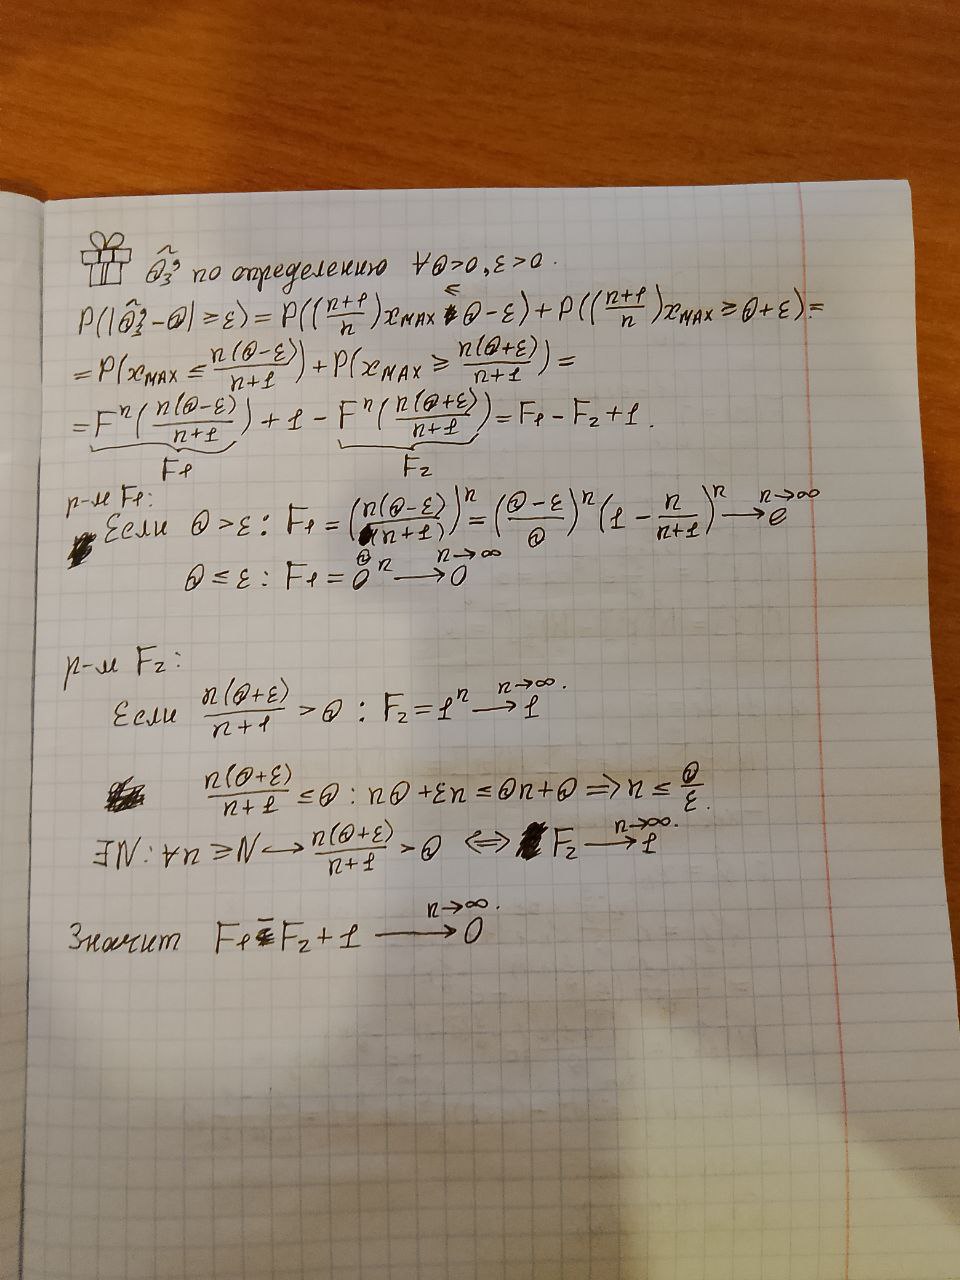 θ̃₃ по определению ∀θ>0, ε>0.
P(|θ̃₃-θ| ≥ ε) = P((n+1/n)x_MAX ≤ θ-ε) + P((n+1/n)x_MAX ≥ θ+ε) =
= P(x_MAX ≤ n(θ-ε)/n+1) + P(x_MAX ≥ n(θ+ε)/n+1) =
= Fⁿ(n(θ-ε)/n+1) + 1 - Fⁿ(n(θ+ε)/n+1) = F₁ - F₂ + 1.
F₁ F₂
р-м F₁:
Если θ > ε : F₁ = (n(θ-ε)/(n+1)θ)ⁿ = (θ-ε/θ)ⁿ (1 - n/n+1)ⁿ n→∞ → e
θ ≤ ε : F₁ = 0ⁿ n→∞ → 0
р-м F₂:
Если n(θ+ε)/n+1 > θ : F₂ = 1ⁿ n→∞. → 1
n(θ+ε)/n+1 ≤ θ : nθ + εn ≤ θn + θ => n ≤ θ/ε.
∃N: ∀n ≥ N ↦ n(θ+ε)/n+1 > θ <=> F₂ n→∞. → 1
Значит F₁ - F₂ + 1 n→∞. → 0